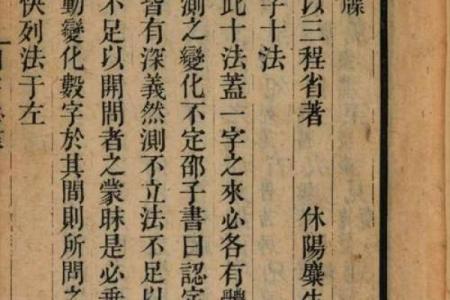 牒
以三程省著　休陽麋生
字十法
此十法蓋一字之來必各有體
測之變化不定邵子書曰認字
皆有深義然測不立法不足以
不足以開問者之蒙昧是必
動變化數字於其間則所問之
列法于左